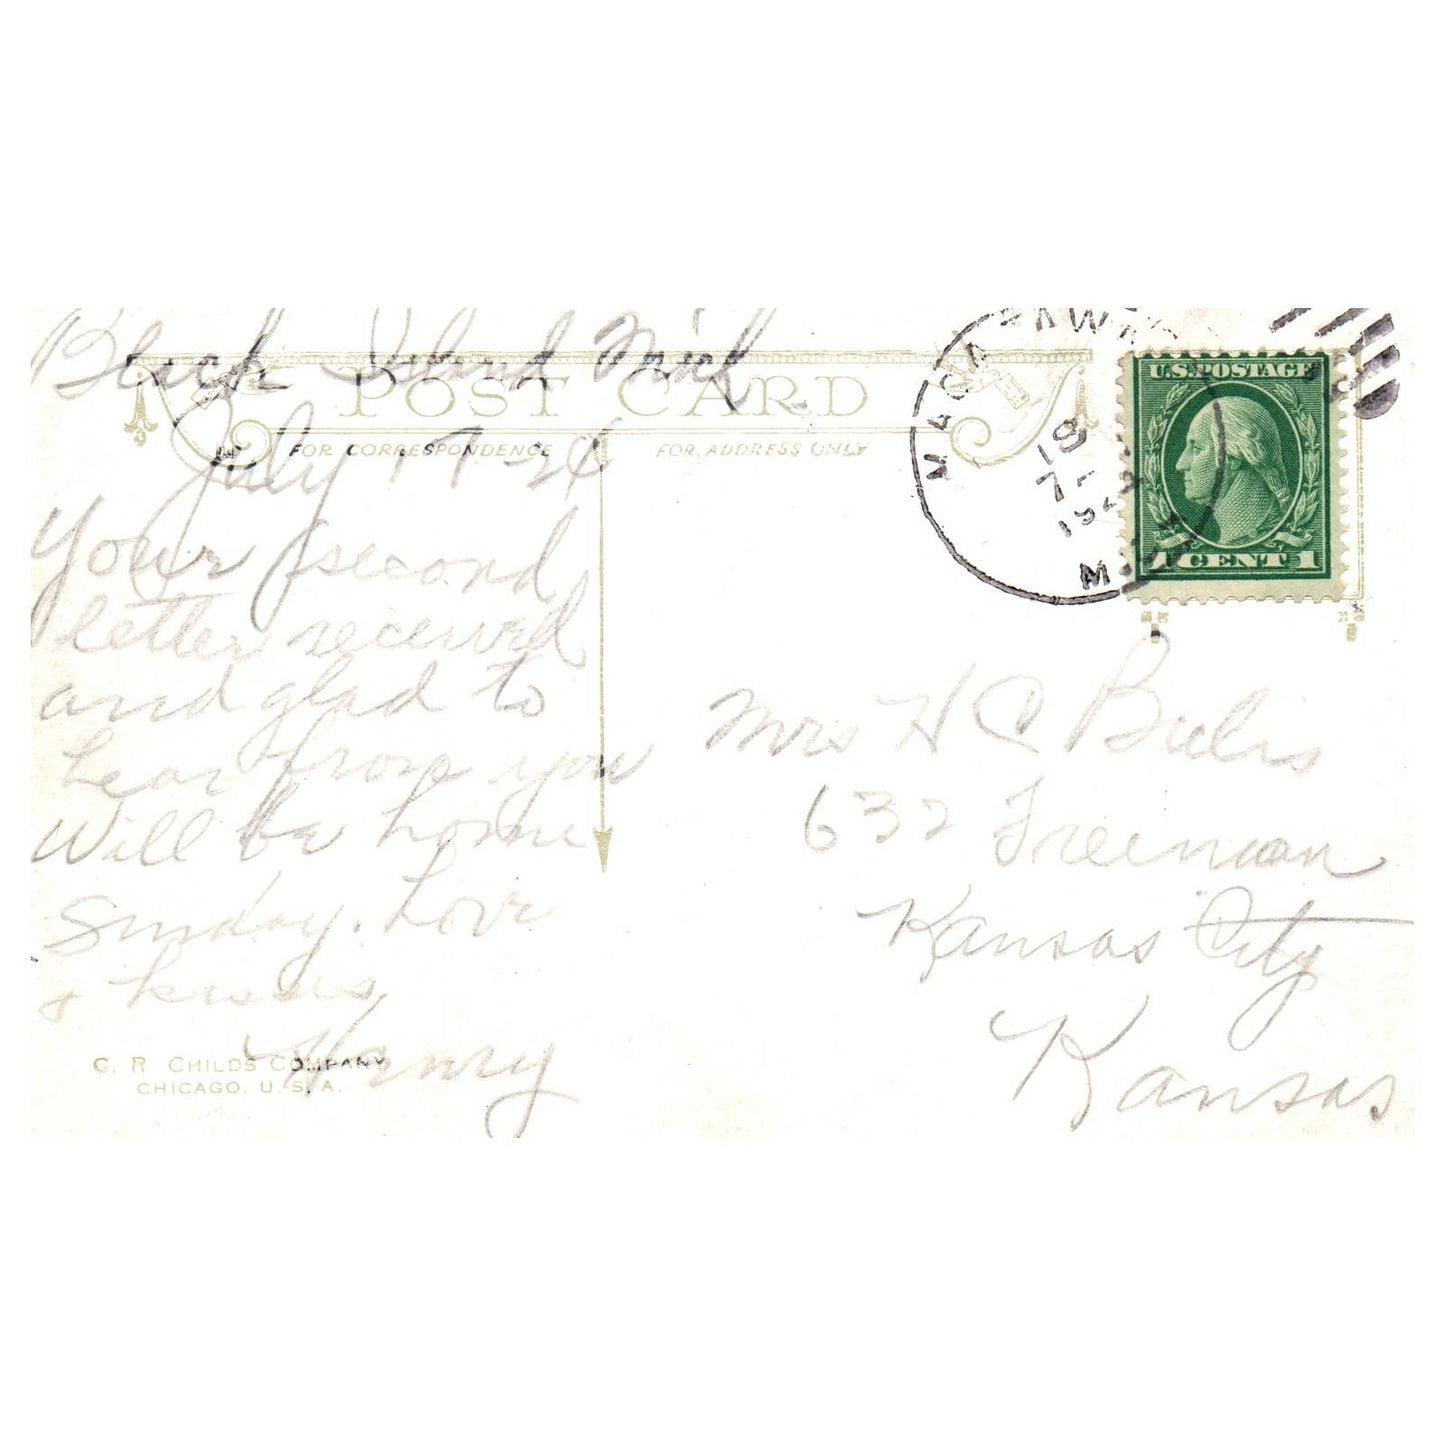 Black Island Mich
POST CARD
FOR CORRESPONDENCE
FOR ADDRESS ONLY
July 17-
Your second
letter received
and glad to
hear from you
Will be home
Sunday. Love
& kisses
Henry
C. R. CHILDS COMPANY
CHICAGO. U. S. A.
19
7-
192
U.S. POSTAGE
1 CENT 1
Mrs H C
632 Freeman
Kansas City
Kansas